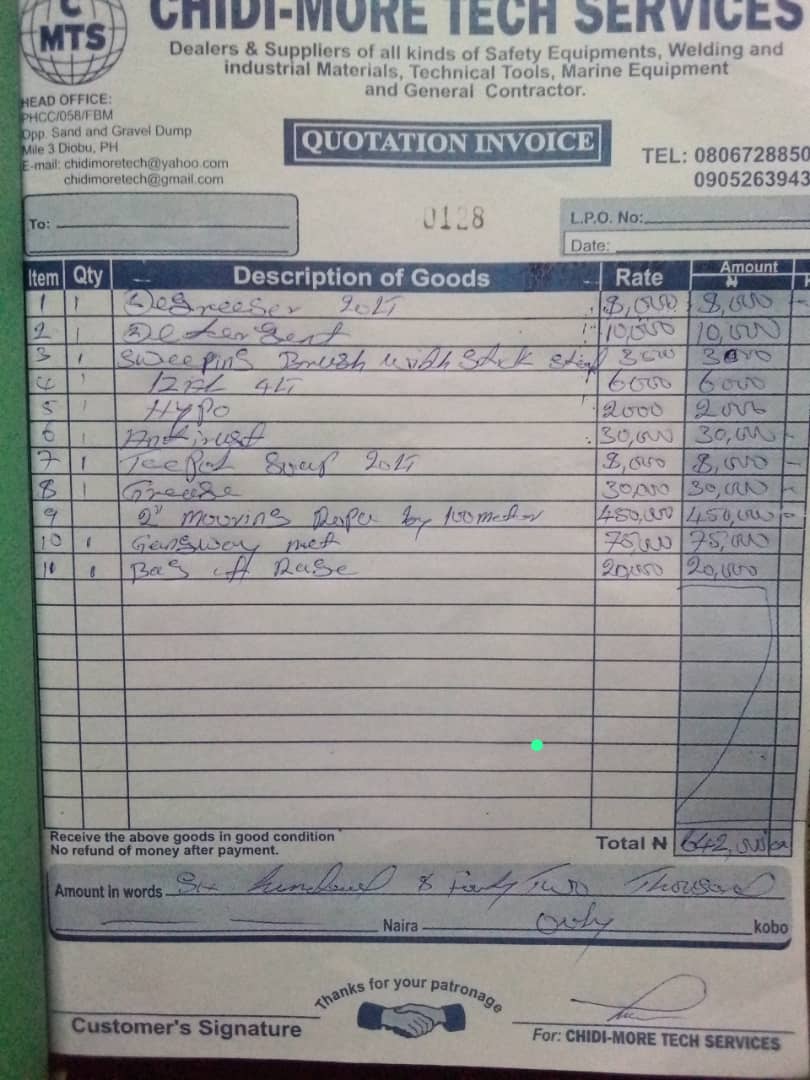 C
MTS
CHIDI-MORE TECH SERVICES
Dealers & Suppliers of all kinds of Safety Equipments, Welding and
industrial Materials, Technical Tools, Marine Equipment
and General Contractor.
HEAD OFFICE:
PHCC/058/FBM
Opp. Sand and Gravel Dump
Mile 3 Diobu, PH
E-mail: chidimoretech@yahoo.com
chidimoretech@gmail.com
QUOTATION INVOICE
TEL: 0806728850
0905263943
To:
0128
L.P.O. No:
Date:
Item Qty Description of Goods Rate Amount
₦ K
1 1 Degreeser 20LT 8,000 8,000
2 1 Detergent 10,000 10,000
3 1 Sweeping Brush with Stick 3000 3000
4 1 4LT 6000 6000
5 1 Hypo 2000 2000
6 1 Antirust 30,000 30,000
7 1 Teepol Soap 20LT 8,000 8,000
8 1 Grease 30,000 30,000
9 2" mooring Rope by 100meter 450,000 450,000
10 1 Gangway net 75,000 75,000
11 1 Bag of Rage 20,000 20,000
Receive the above goods in good condition
No refund of money after payment.
Total ₦ 642,000
Amount in words Six hundred & Fourty Two Thousand
Naira Only kobo
Thanks for your patronage
Customer's Signature
For: CHIDI-MORE TECH SERVICES